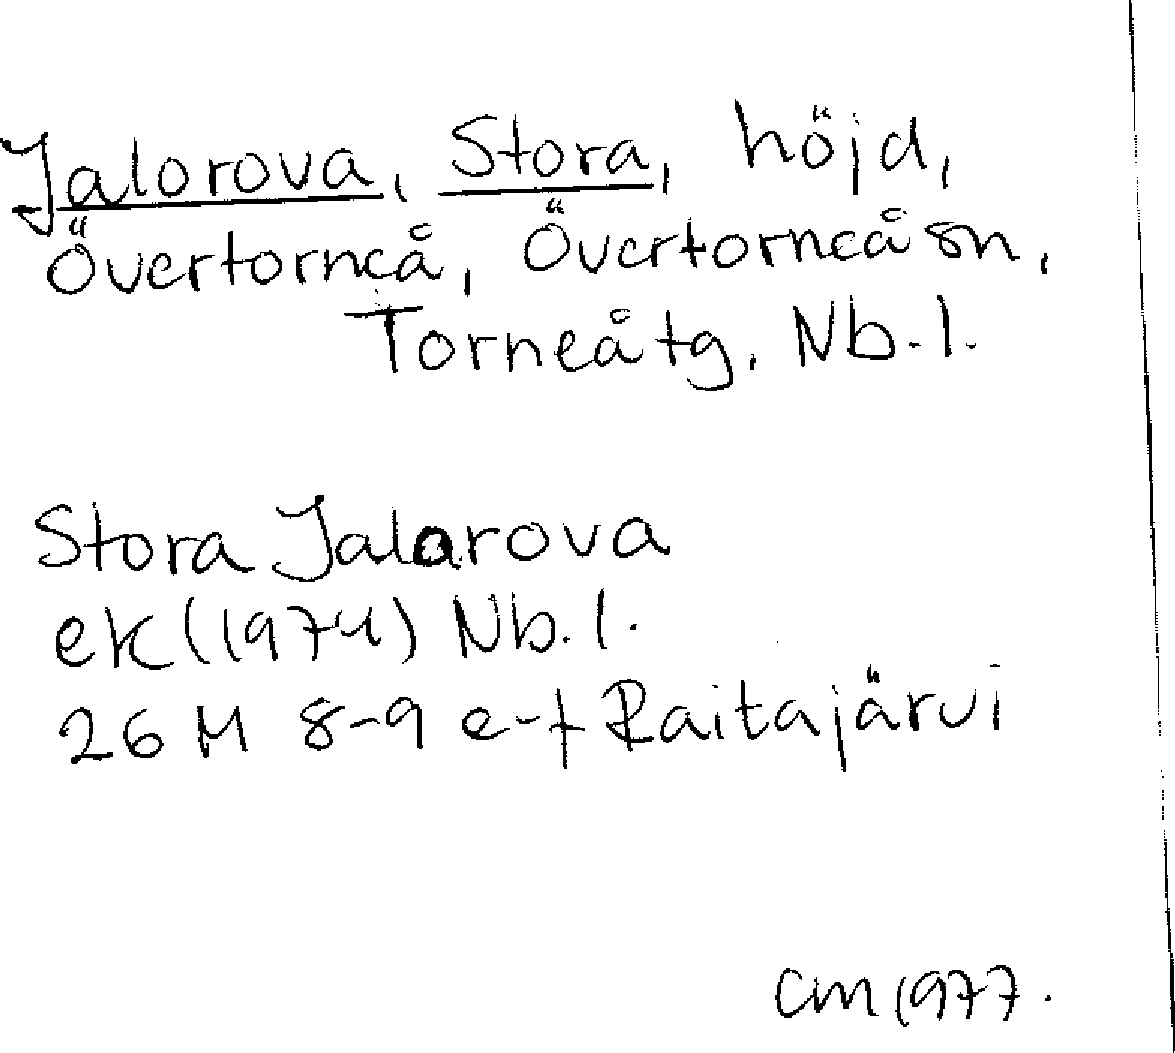 Jalorova, Stora, höjd,
Övertorneå, Övertorneå sn,
Torneå tg, Nb. l.
Stora Jalorova
ek (1974) Nb. l.
26 M 8-9 e-f Raitajärvi
CM 1977.